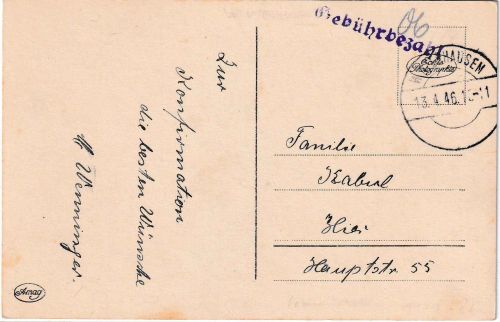 Zur
Konfirmation
die besten Wünsche
Wenninger.
Amag
Gebührbezahlt
06
Echte
Photographie
HAUSEN
13.4.46.
Familie
Kabul
Hier
Hauptstr 55